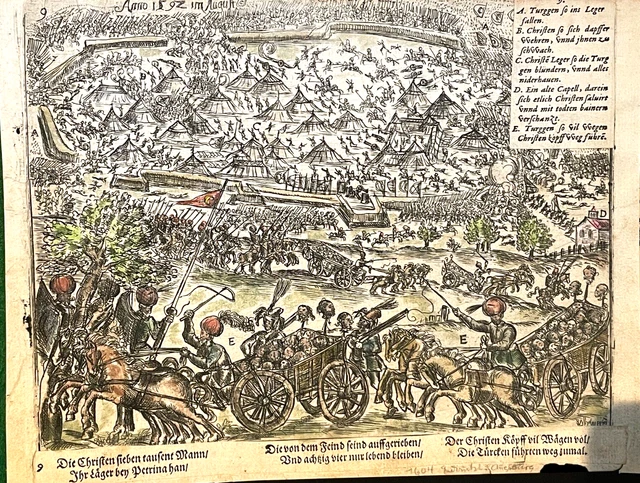 9
Anno 1592 im August
A. Turggen so ins Leger
fallen.
B. Christen so sich dapffer
Wehren, vnnd jhnen zu
schWach.
C. Christē Leger so die Turg
gen blundern, vnnd alles
niderhauen.
D. Ein alte Capell, darein
sich etlich Christen saluirt
vnnd mit todten bainern
verschanzt.
E. Turggen so vil Wegen
Christen köpff Weg führt.
C
A
A
D
E
E
9
Die Christen sieben tausent Mann/
Ihr Läger bey Petrina han/
Die von dem Feind seind auffgerieben/
Vnd achtzig vier nur lebend bleiben/
Der Christen Köpff vil Wägen vol/
Die Türcken führten weg zumal.
1604